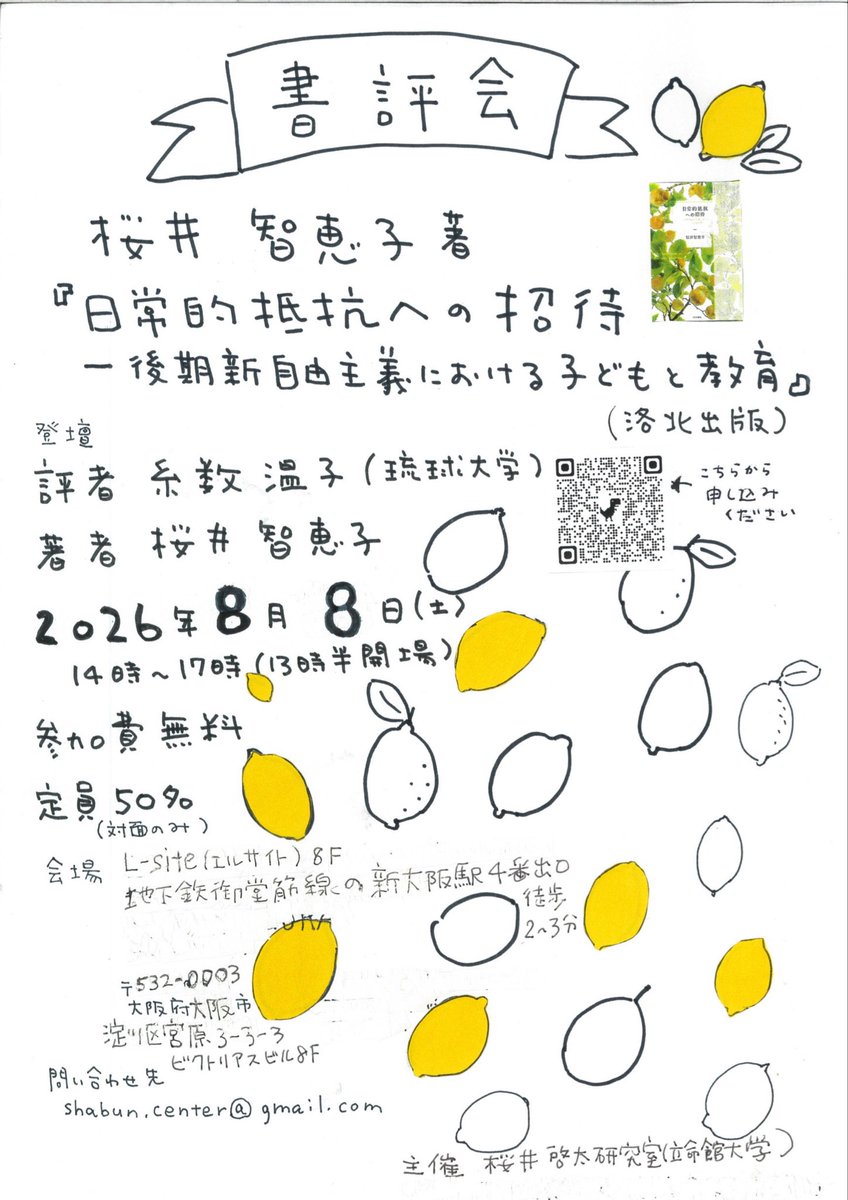 書評会
桜井 智恵子 著
『日常的抵抗への招待
ー後期新自由主義における子どもと教育』
(洛北出版)
日常的抵抗
への招待
桜井智恵子
登壇
評者 糸数 温子 (琉球大学)
こちらから
申し込み
ください
著者 桜井 智恵子
2026年 8月 8日(土)
14時~17時(13時半開場)
参加費無料
定員 50名
(対面のみ)
会場 L-site(エルサイト) 8F
地下鉄御堂筋線の新大阪駅4番出口
徒歩
2~3分
〒532-0003
大阪府大阪市
淀川区宮原3-3-3
ビクトリアスビル8F
問い合わせ先
shabun.center@gmail.com
主催 桜井 啓太研究室(立命館大学)